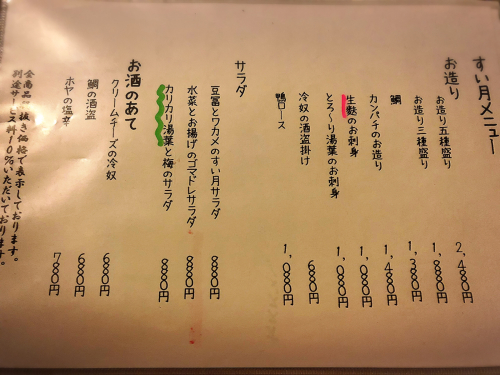 すい月メニュー
お造り
お造り五種盛り 2,480円
お造り三種盛り 1,880円
鯛 1,380円
カンパチのお造り 1,480円
生麩のお刺身 1,080円
とろ～り湯葉のお刺身 1,080円
冷奴の酒盗掛け 680円
鴨ロース 1,080円
サラダ
豆富とワカメのすい月サラダ 880円
水菜とお揚げのゴマドレサラダ 880円
カリカリ湯葉と梅のサラダ 880円
お酒のあて
クリームチーズの冷奴 680円
鯛の酒盗 680円
ホヤの塩辛 780円
全商品、抜き価格で表示しております。
別途サービス料10%いただいております。